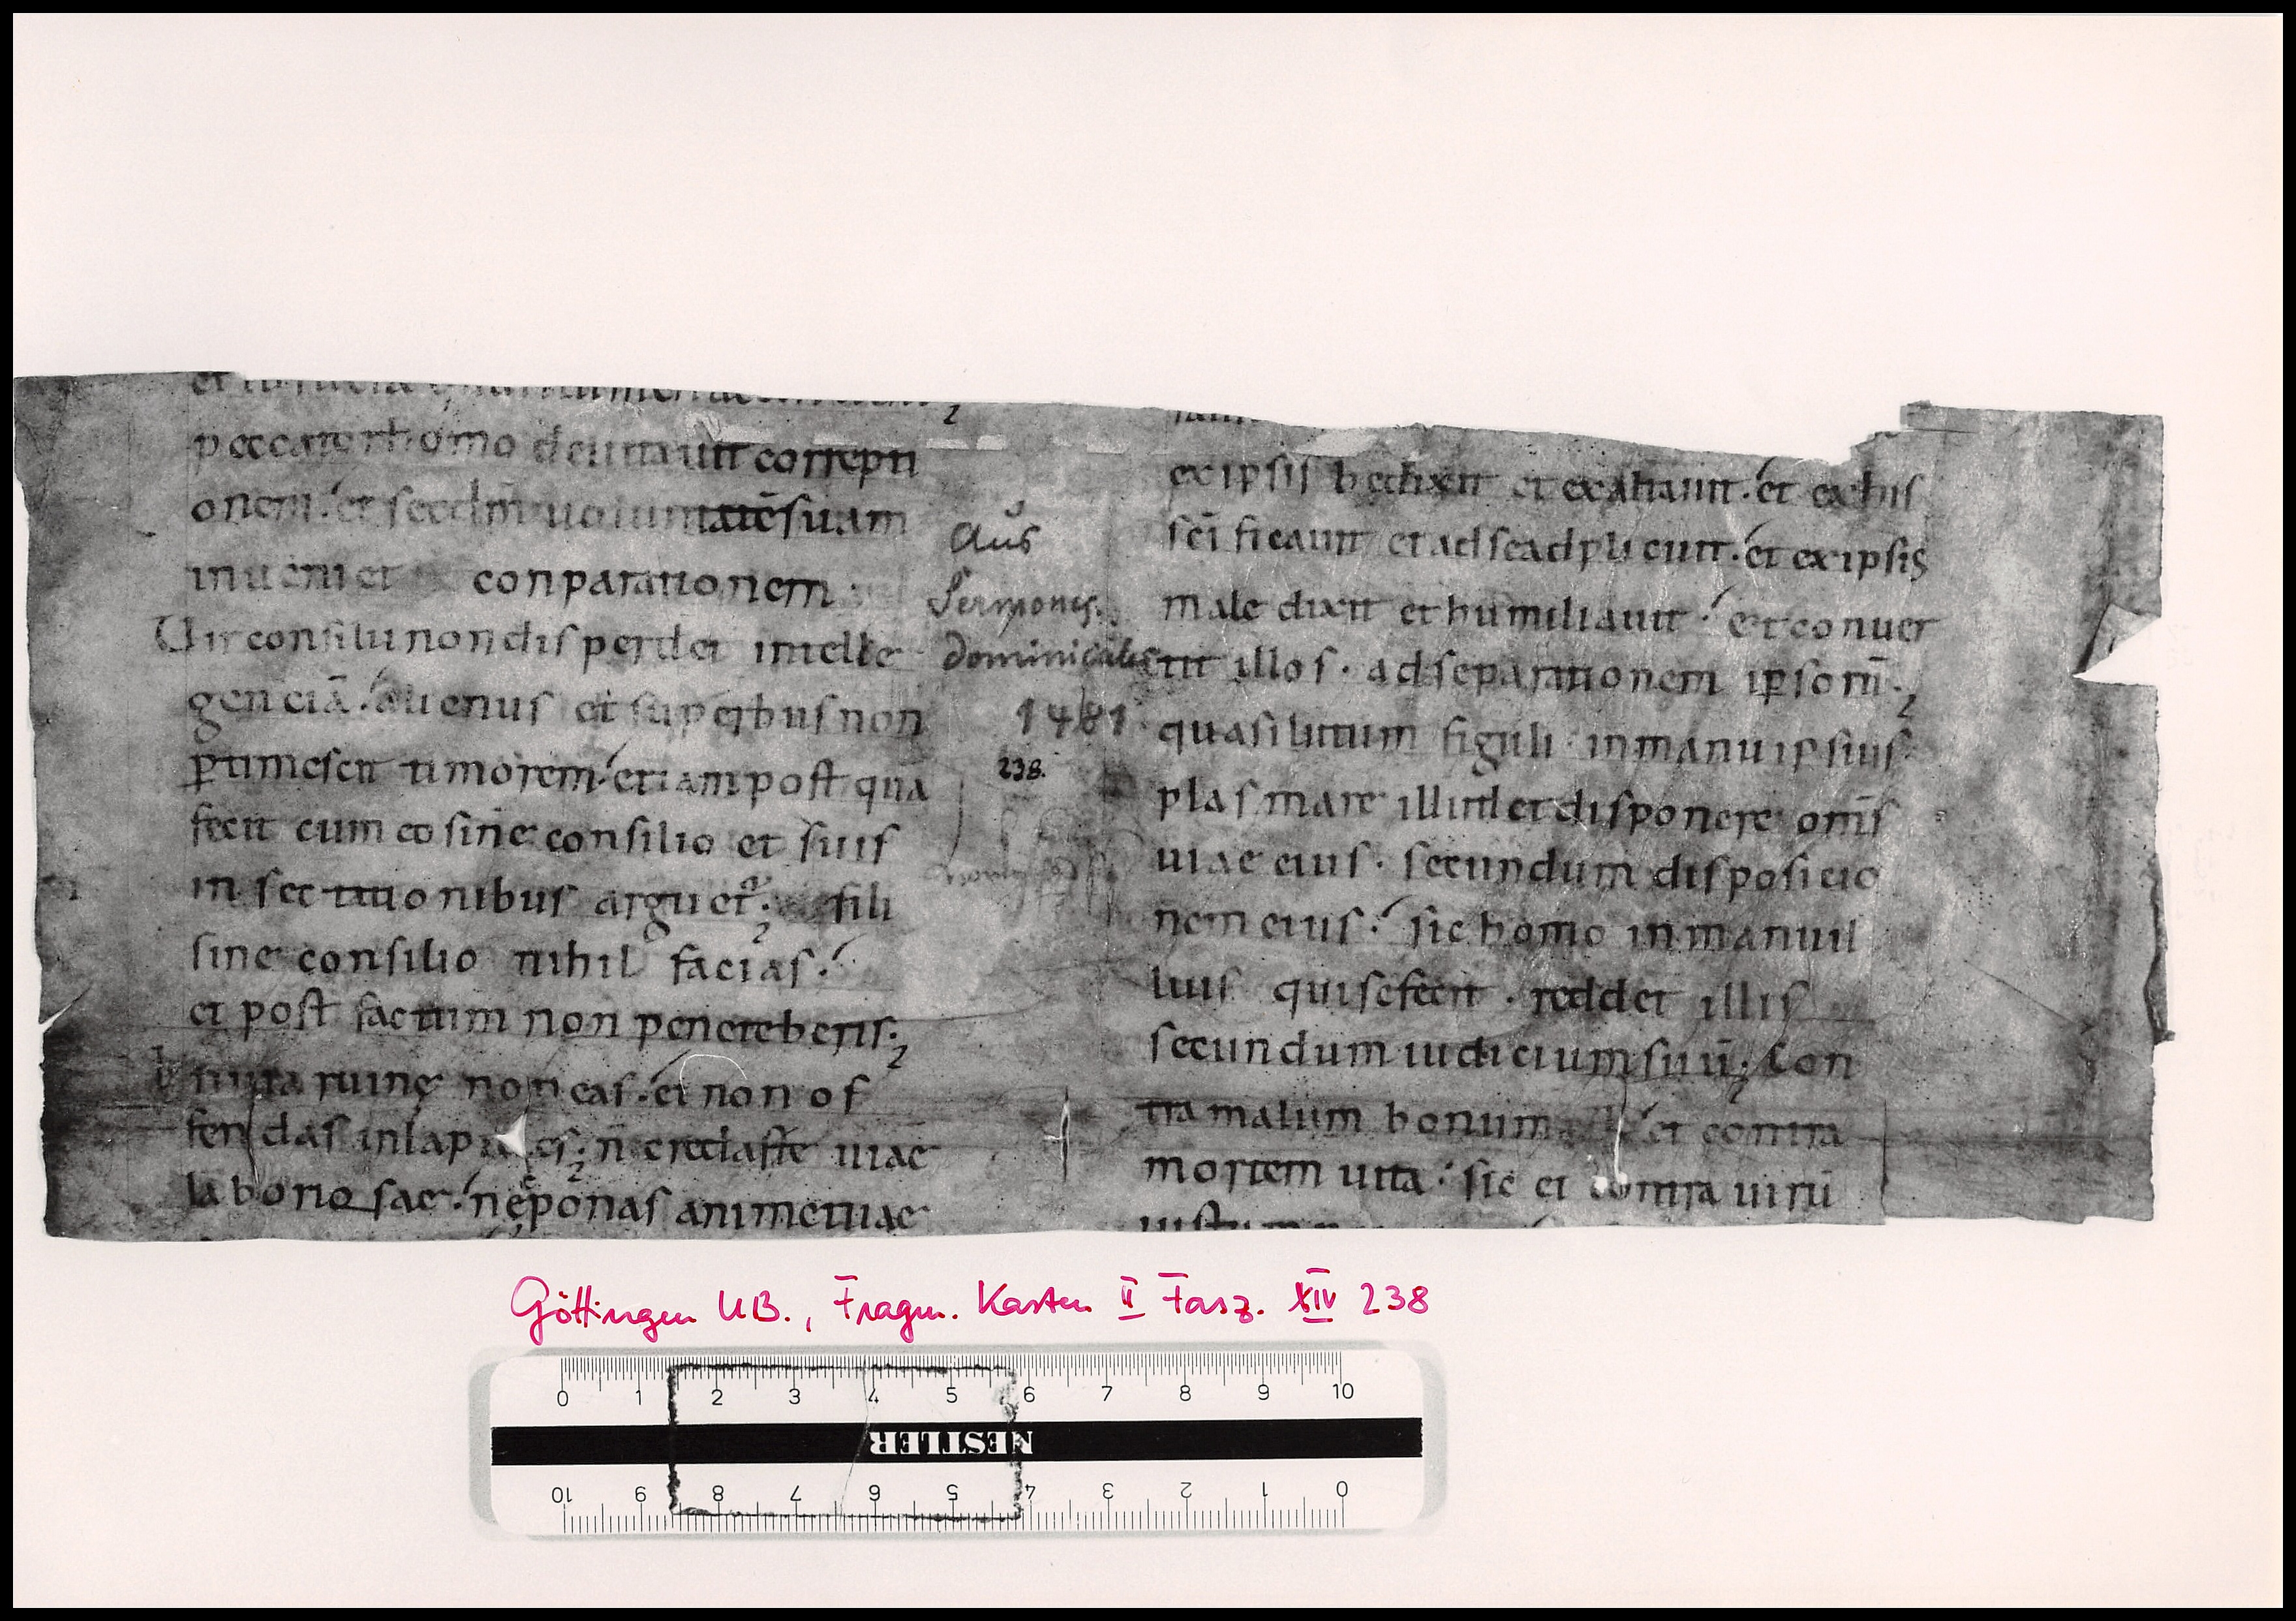 peccator homo deuitauit correpti
onem. et secdm uoluntatē suam
inueniet conparationem
Uir consilii non disperdet intelle
genciā. alienus et superbus non
ꝑtimescit timorem. etiam post qua
fecit cum eo sine consilio et suis
insectationibus arguet. fili
sine consilio nihil facias.
et post factum non peneteberis.
In uia ruinę non eas. et non of
fendas in lap es. n credaste uiae
laboriosae. ne ponas animę tuae
Aus
Sermones
dominicales
1481
238.
ex ipsis bedixit et exaltauit. et ex his
sci ficauit et ad se adplicuit. et ex ipsis
maledixit et humiliauit. et conuer
tit illos. ad separationem ipsorū.
quasi lutum figuli in manu ipsius
plasmare illud et disponere oms
uiae eius. secundum disposicio
nem eius. sic homo in manu il
lius qui se fecit. reddet illis
secundum iudicium suū. Con
tra malum bonum et contra
mortem uita. sic et contra uirū
Göttingen UB., Fragm. Kasten II Fasz. XIV 238
0 1 2 3 4 5 6 7 8 9 10
NESTLER
10 9 8 7 6 5 4 3 2 1 0